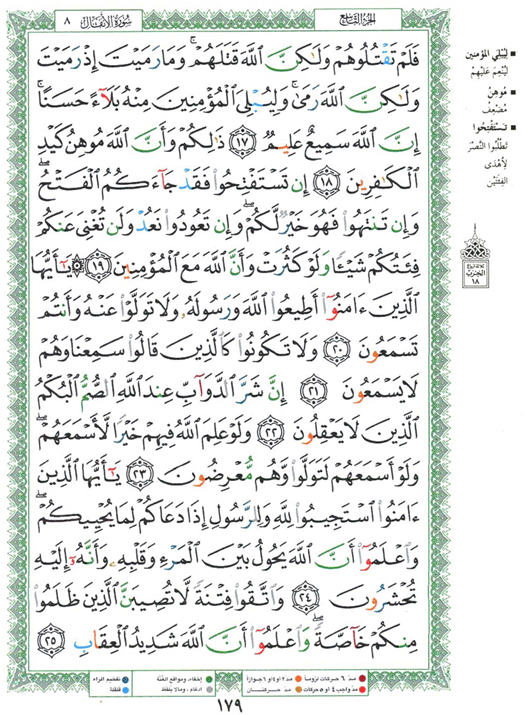 سُورَةُ الأَنفَالِ ٨
الجزء التاسع
فَلَمْ تَقْتُلُوهُمْ وَلَٰكِنَّ ٱللَّهَ قَتَلَهُمْ ۚ وَمَا رَمَيْتَ إِذْ رَمَيْتَ
وَلَٰكِنَّ ٱللَّهَ رَمَىٰ ۚ وَلِيُبْلِىَ ٱلْمُؤْمِنِينَ مِنْهُ بَلَآءً حَسَنًا ۚ
إِنَّ ٱللَّهَ سَمِيعٌ عَلِيمٌ ١٧ ذَٰلِكُمْ وَأَنَّ ٱللَّهَ مُوهِنُ كَيْدِ
ٱلْكَٰفِرِينَ ١٨ إِن تَسْتَفْتِحُوا۟ فَقَدْ جَآءَكُمُ ٱلْفَتْحُ ۖ
وَإِن تَنتَهُوا۟ فَهُوَ خَيْرٌ لَّكُمْ ۖ وَإِن تَعُودُوا۟ نَعُدْ وَلَن تُغْنِىَ عَنكُمْ
فِئَتُكُمْ شَيْـًٔا وَلَوْ كَثُرَتْ وَأَنَّ ٱللَّهَ مَعَ ٱلْمُؤْمِنِينَ ١٩ ۞ يَٰٓأَيُّهَا
ٱلَّذِينَ ءَامَنُوٓا۟ أَطِيعُوا۟ ٱللَّهَ وَرَسُولَهُۥ وَلَا تَوَلَّوْا۟ عَنْهُ وَأَنتُمْ
تَسْمَعُونَ ٢٠ وَلَا تَكُونُوا۟ كَٱلَّذِينَ قَالُوا۟ سَمِعْنَا وَهُمْ
لَا يَسْمَعُونَ ٢١ إِنَّ شَرَّ ٱلدَّوَآبِّ عِندَ ٱللَّهِ ٱلصُّمُّ ٱلْبُكْمُ
ٱلَّذِينَ لَا يَعْقِلُونَ ٢٢ وَلَوْ عَلِمَ ٱللَّهُ فِيهِمْ خَيْرًا لَّأَسْمَعَهُمْ ۖ
وَلَوْ أَسْمَعَهُمْ لَتَوَلَّوا۟ وَّهُم مُّعْرِضُونَ ٢٣ يَٰٓأَيُّهَا ٱلَّذِينَ
ءَامَنُوا۟ ٱسْتَجِيبُوا۟ لِلَّهِ وَلِلرَّسُولِ إِذَا دَعَاكُمْ لِمَا يُحْيِيكُمْ ۖ
وَٱعْلَمُوٓا۟ أَنَّ ٱللَّهَ يَحُولُ بَيْنَ ٱلْمَرْءِ وَقَلْبِهِۦ وَأَنَّهُۥٓ إِلَيْهِ
تُحْشَرُونَ ٢٤ وَٱتَّقُوا۟ فِتْنَةً لَّا تُصِيبَنَّ ٱلَّذِينَ ظَلَمُوا۟
مِنكُمْ خَآصَّةً ۖ وَٱعْلَمُوٓا۟ أَنَّ ٱللَّهَ شَدِيدُ ٱلْعِقَابِ ٢٥
لِيُبْلِيَ المُؤمنين
لِيُنْعِمَ عَلَيْهِمْ
مُوهِنُ
مُضْعِفُ
تَسْتَفْتِحُوا
تَطْلُبُوا النَّصْرَ
لِأَهْدَى
الفِئَتَيْن
الحزب
١٨
مدّ ٦ حركات لزوماً
مدّ ٢ أو ٤ أو ٦ جوازاً
إخفاء، ومواقع الغُنَّة
تفخيم الراء
مدّ واجب ٤ أو ٥ حركات
مدّ حركتان
ادغام، وما لا يُلفظ
قلقلة
١٧٩